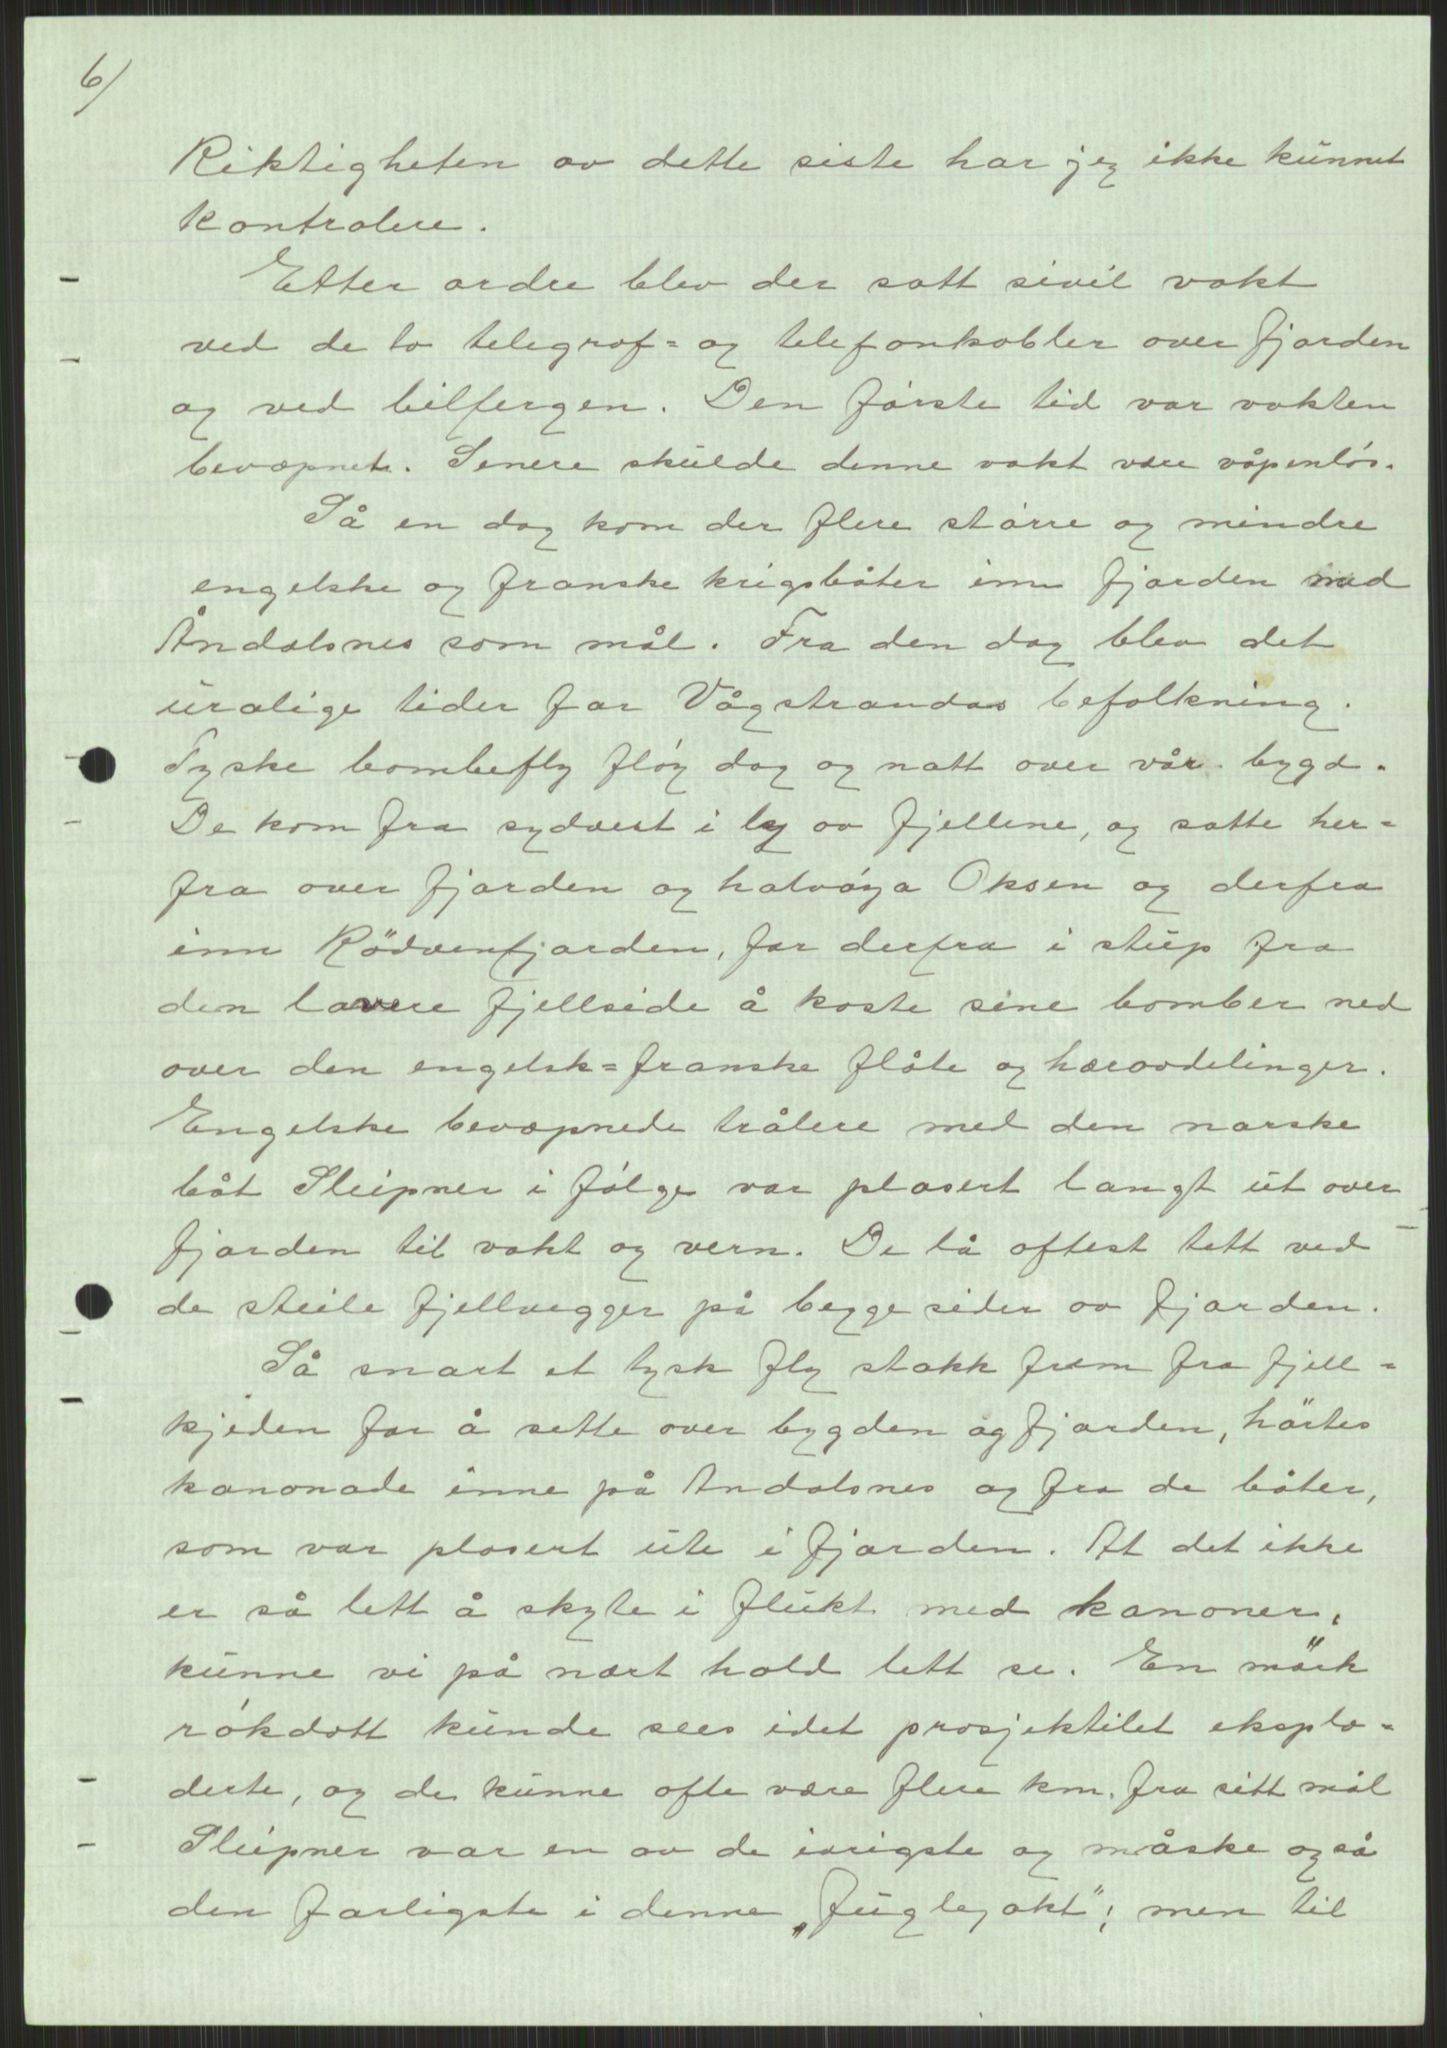 6/
Riktigheten av dette siste har jeg ikke kunnet
kontrolere.
Etter ordre blev der satt sivil vakt
ved de to telegraf= og telefonkabler over fjorden
og ved bilfergen. Den første tid var vakten
bevæpnet. Senere skulde denne vakt være våpenløs.
Så en dag kom der flere større og mindre
engelske og franske krigsbåter inn fjorden med
Åndalsnes som mål. Fra den dag blev det
urolige tider for Vågstrandas befolkning.
Tyske bombefly fløy dag og natt over vår bygd.
De kom fra sydvest i ly av fjellene, og satte her=
fra over fjorden og halvøya Oksen og derfra
inn Rödvenfjorden, for derfra i stup fra
den lavere fjellside å kaste sine bomber ned
over den engelsk=franske flåte og hæravdelinger.
Engelske bevæpnede trålere med den norske
båt Sleipner i følge var plasert langt ut over
fjorden til vakt og vern. De lå oftest tett ved
de steile fjellvegger på begge sider av fjorden.
Så snart et tysk fly stakk frem fra fjell=
kjeden for å sette over bygden og fjorden, hörtes
kanonade inne på Åndalsnes og fra de båter,
som var plasert ute i fjorden. At det ikke
er så lett å skyte i flukt med kanoner,
kunne vi på nært hold lett se. En mörk
røkdott kunde sees idet prosjektilet eksplo=
derte, og de kunne ofte være flere km. fra sitt mål
Sleipner var en av de ivrigste og måske også
den farligste i denne „fuglejakt"; men til